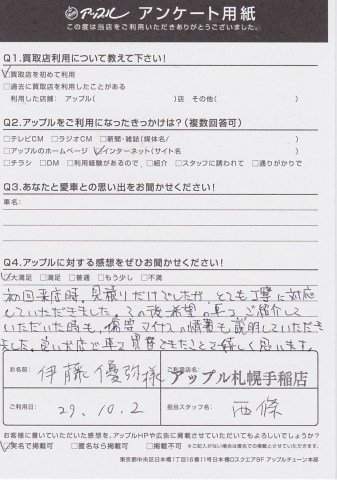 アップル アンケート用紙
この度は当店をご利用いただきありがとうございました。
Q1.買取店利用について教えて下さい!
☑買取店を初めて利用
□過去に買取店を利用したことがある
利用した店舗: アップル( )店 その他( )
Q2.アップルをご利用になったきっかけは?(複数回答可)
□テレビCM □ラジオCM □新聞・雑誌(媒体名/ )
□アップルのホームページ ☑インターネット(サイト名 )
□チラシ □DM □利用経験があるので □紹介 □スタッフに誘われて □通りがかりで
Q3.あなたと愛車との思い出をお聞かせください!
車名:
Q4.アップルに対する感想をぜひお聞かせください!
☑大満足 □満足 □普通 □もう少し □不満
初回来店時、見積りだけでしたが、とても丁寧に対応
していただきました。その後希望の車をご紹介して
いただいた時も、マイナスの情報も説明していただき
ました。良いお店で車を買替できたことを嬉しく思います。
お名前: 伊藤 優弥 様
ご利用店名: アップル札幌手稲店
ご利用日: 29.10.2
担当スタッフ名: 西條
お客様に書いていただいた感想を、アップルHPや広告に掲載させていただいてもよろしいでしょうか?
☑実名で掲載可 □匿名なら掲載可 □掲載不可 ※ご記入がない場合は匿名での掲載とさせていただきます。
東京都中央区日本橋1丁目16番11号日本橋Dスクエア9F アップルチェーン本部